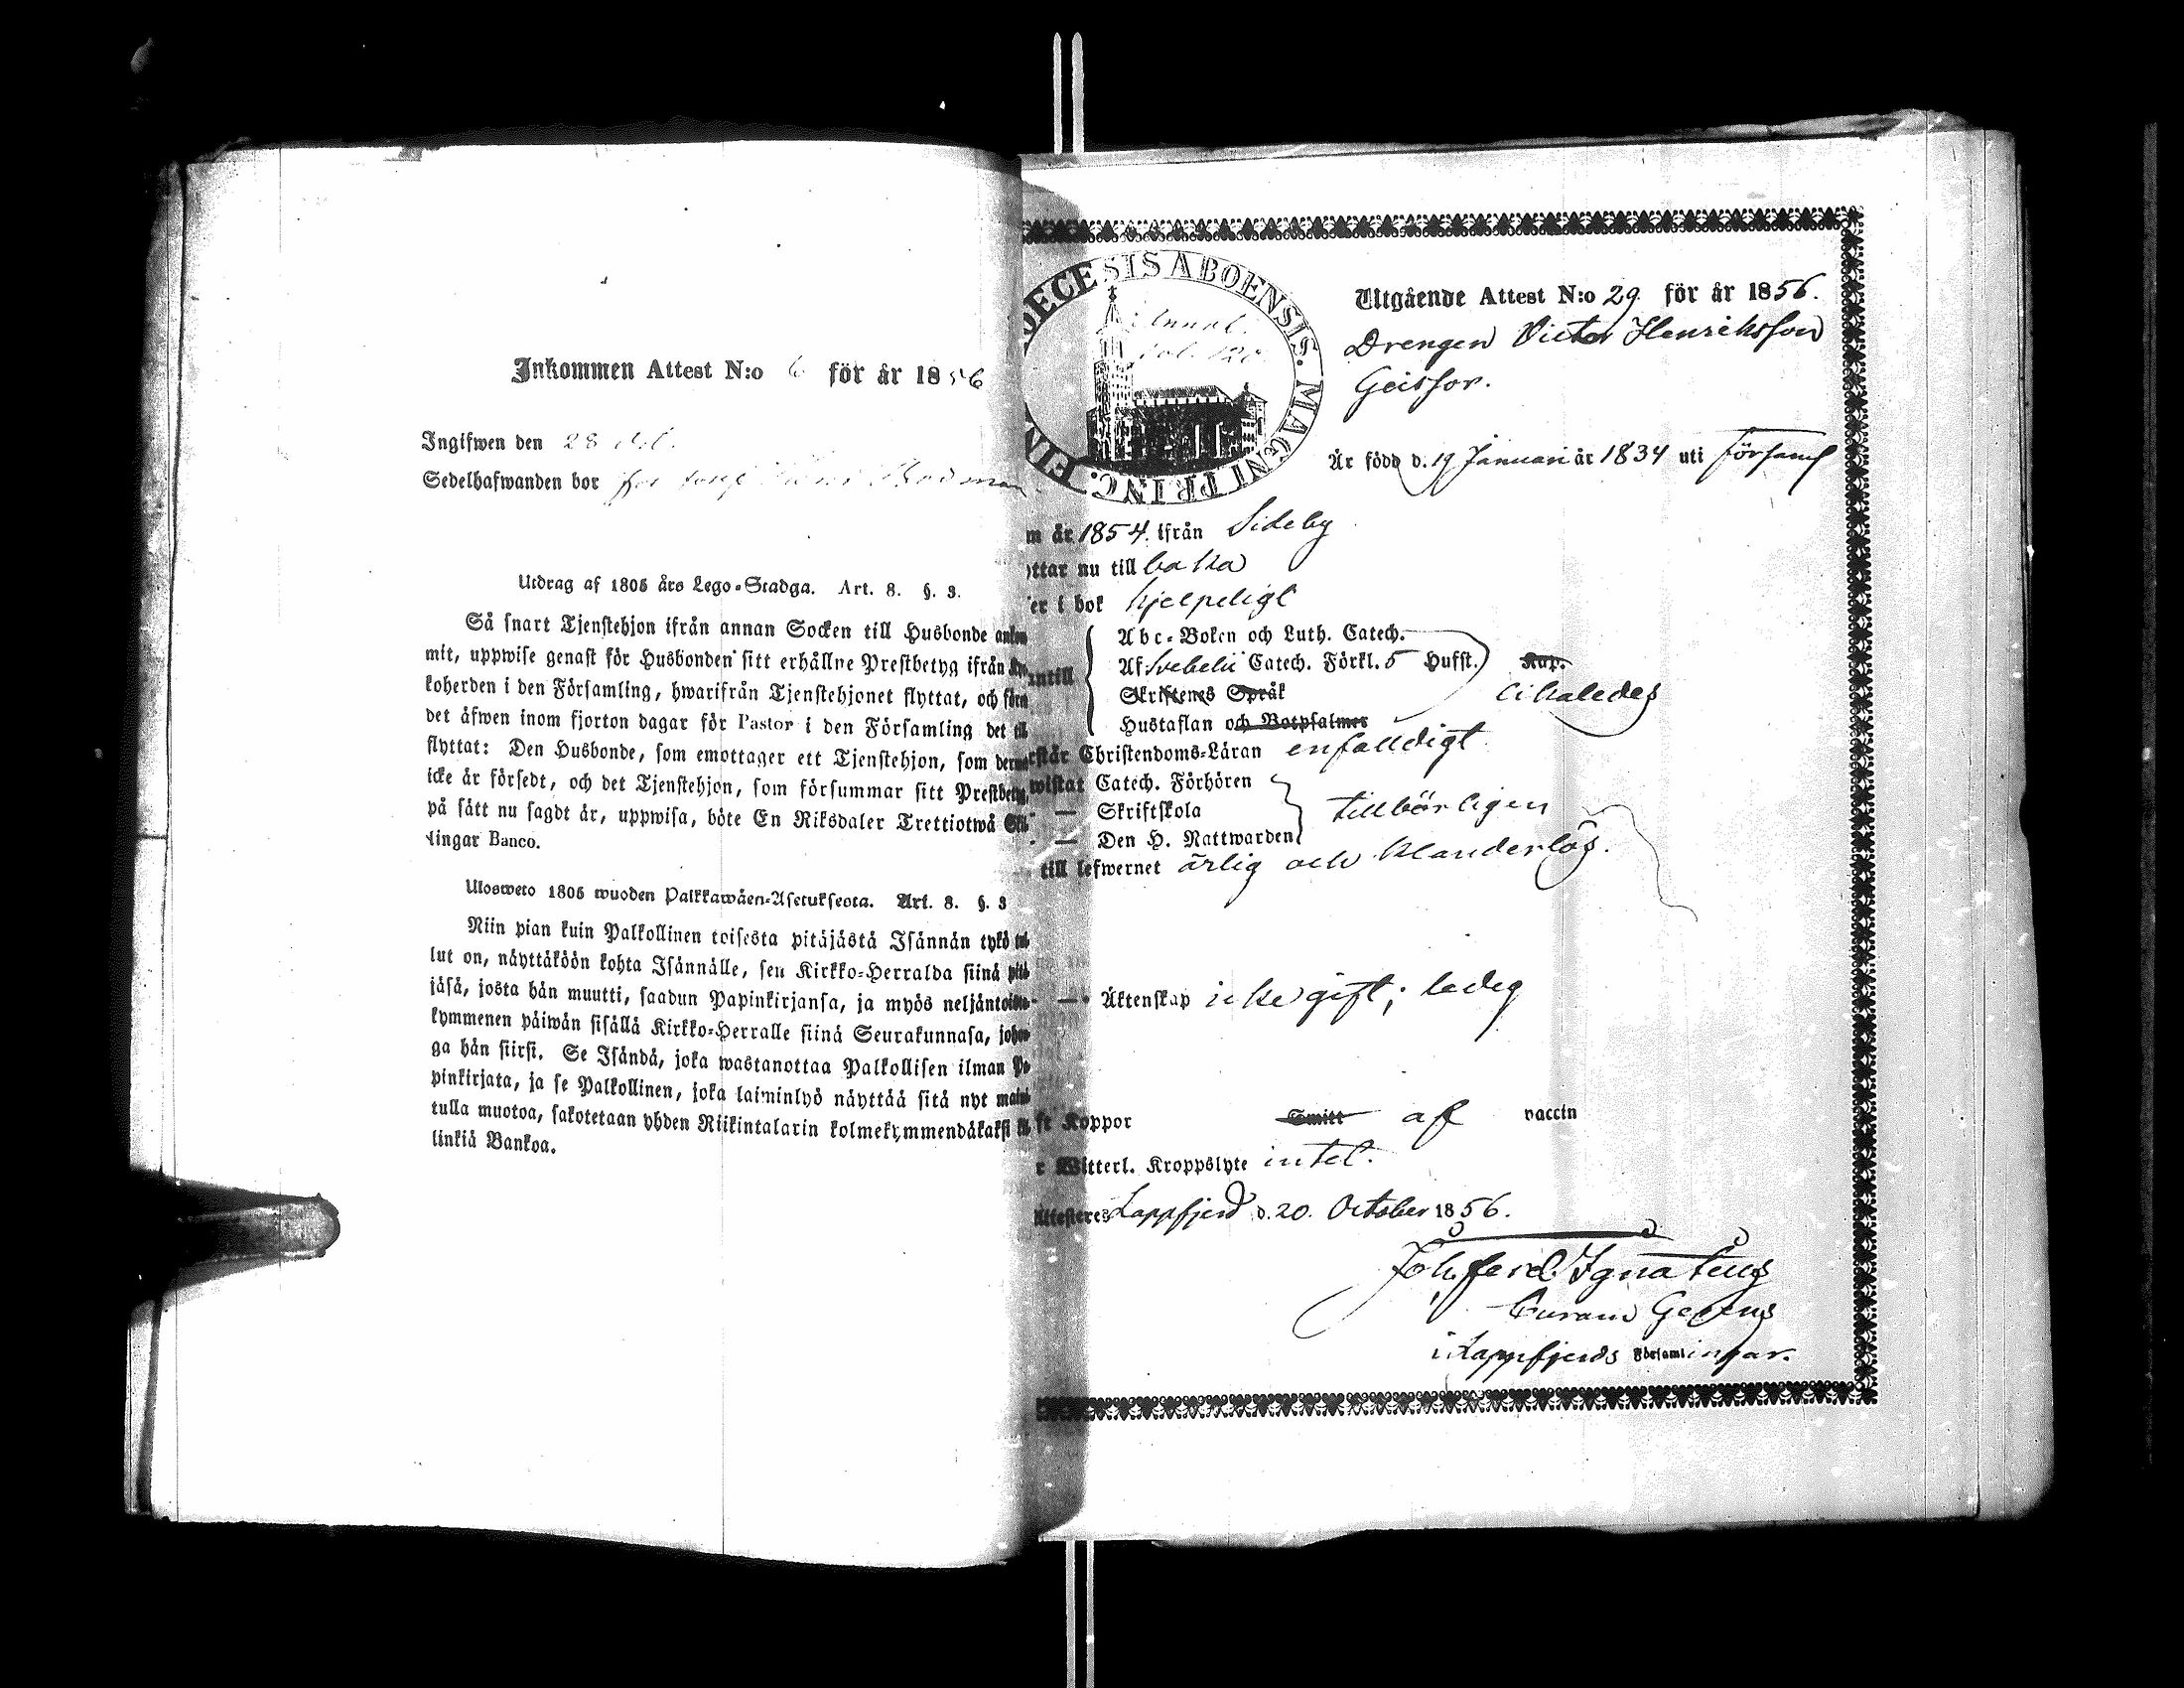 Inkommen Attest N:o 6 för år 1856
Ingifwen den 28 Oct.
Sedelhafwanden bor
Utdrag af 1805 års Lego-Stadga. Art. 8. §. 3.
Så snart Tjenstehjon ifrån annan Socken till Husbonde
mit, uppwise genast för Husbonden sitt erhållne Prestbetyg ifrån
koherden i den Församling, hwarifrån Tjenstehjonet flyttat, och
det äfwen inom fjorton dagar för Pastor i den Församling det till
flyttat: Den Husbonde, som emottager ett Tjenstehjon, som
icke är försedt, och det Tjenstehjon, som försummar sitt Prestbetyg,
på sätt nu sagdt är, uppwisa, böte En Riksdaler Trettiotwå
lingar Banco.
Ulosweto 1805 wuoden Palkkawäen-Asetuksesta. Art. 8. §. 3
Niin pian kuin Palkollinen toisesta pitäjästä Isännän tykö
lut on, näyttäköön kohta Isännälle, sen Kirkko-Herralda siinä
jäsä, josta hän muutti, saadun Papinkirjansa, ja myös neljäntoista-
kymmenen päiwän sisällä Kirkko-Herralle siinä Seurakunnasa,
ga hän siirsi. Se Isändä, joka wastanottaa Palkollisen ilman Pa-
pinkirjata, ja se Palkollinen, joka laiminlyö näyttää sitä nyt
tulla muotoa, sakotetaan yhden Riikintalarin kolmekymmendäkaksi
linkiä Bankoa.
DECESIS ABOENSIS. MAGNI PRINC. FIN
Utgående Attest N:o 29. för år 1856.
Drengen Victor Henriksson
Geissor.
Är född d. 19 Januari år 1834 uti församl
m år 1854. ifrån Sideby
ttar nu till baka
er i bok hjelpeligt
Abc-Boken och Luth. Catech.
ntill Af Svebelii Catech. Förkl. 5 Hufst. Kap.
Skriftenes Språk likaledes
Hustaflan och Botpsalmer
rstår Christendoms-Läran enfalldigt
wistat Catech. Förhören
— Skriftskola tillbörligen
— Den H. Nattwarden
till lefwernet ärlig och klanderlös.
— Äktenskap icke gift; ledig
ft Koppor Smitt af vaccin
r Witterl. Kroppslyte intet.
Attesteres Lappfjerd d. 20. October 1856.
Joh. Ferd. Ignatius
Curam Gerens
i Lappfjerds Församlingar.